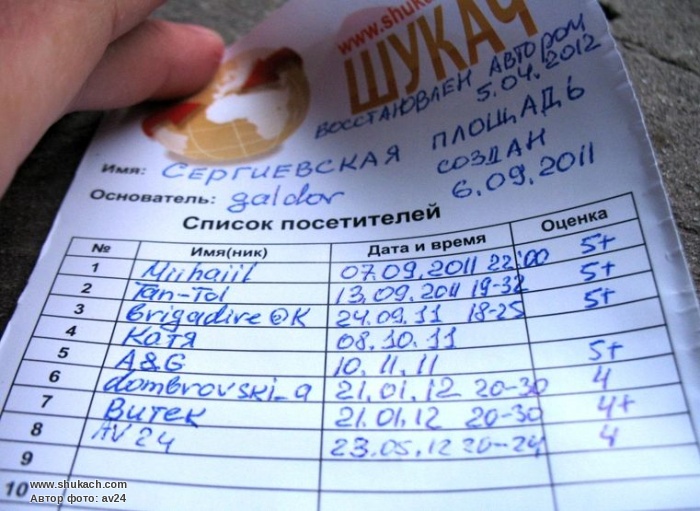 www.shukach
ШУКАЧ
ВОССТАНОВЛЕН АВТОРОМ
5.04.2012
Имя: СЕРГИЕВСКАЯ ПЛОЩАДЬ
СОЗДАН
Основатель: galdor 6.09.2011
Список посетителей
№ Имя(ник) Дата и время Оценка
1 Muhaiil 07.09.2011 22:00 5+
2 Tan-Tol 13.09.2011 19-32 5+
3 Brigadire@K 24.09.11 18-25 5+
4 Катя 08.10.11
5 A&G 10.11.11 5+
6 dombrovski_a 21.01.12 20-30 4
7 Витек 21.01.12 20-30 4+
8 AV24 23.05.12 20-24 4
9
10
www.shukach.com
Автор фото: av24